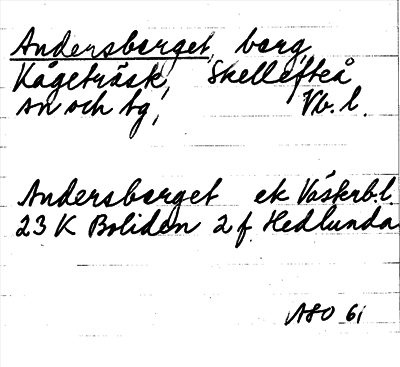 Andersberget, berg,
Kågeträsk, Skellefteå
sn och tg, Vb. l.
Andersberget ek Västerb.l.
23 K Boliden 2 f Hedlunda
ASO 61